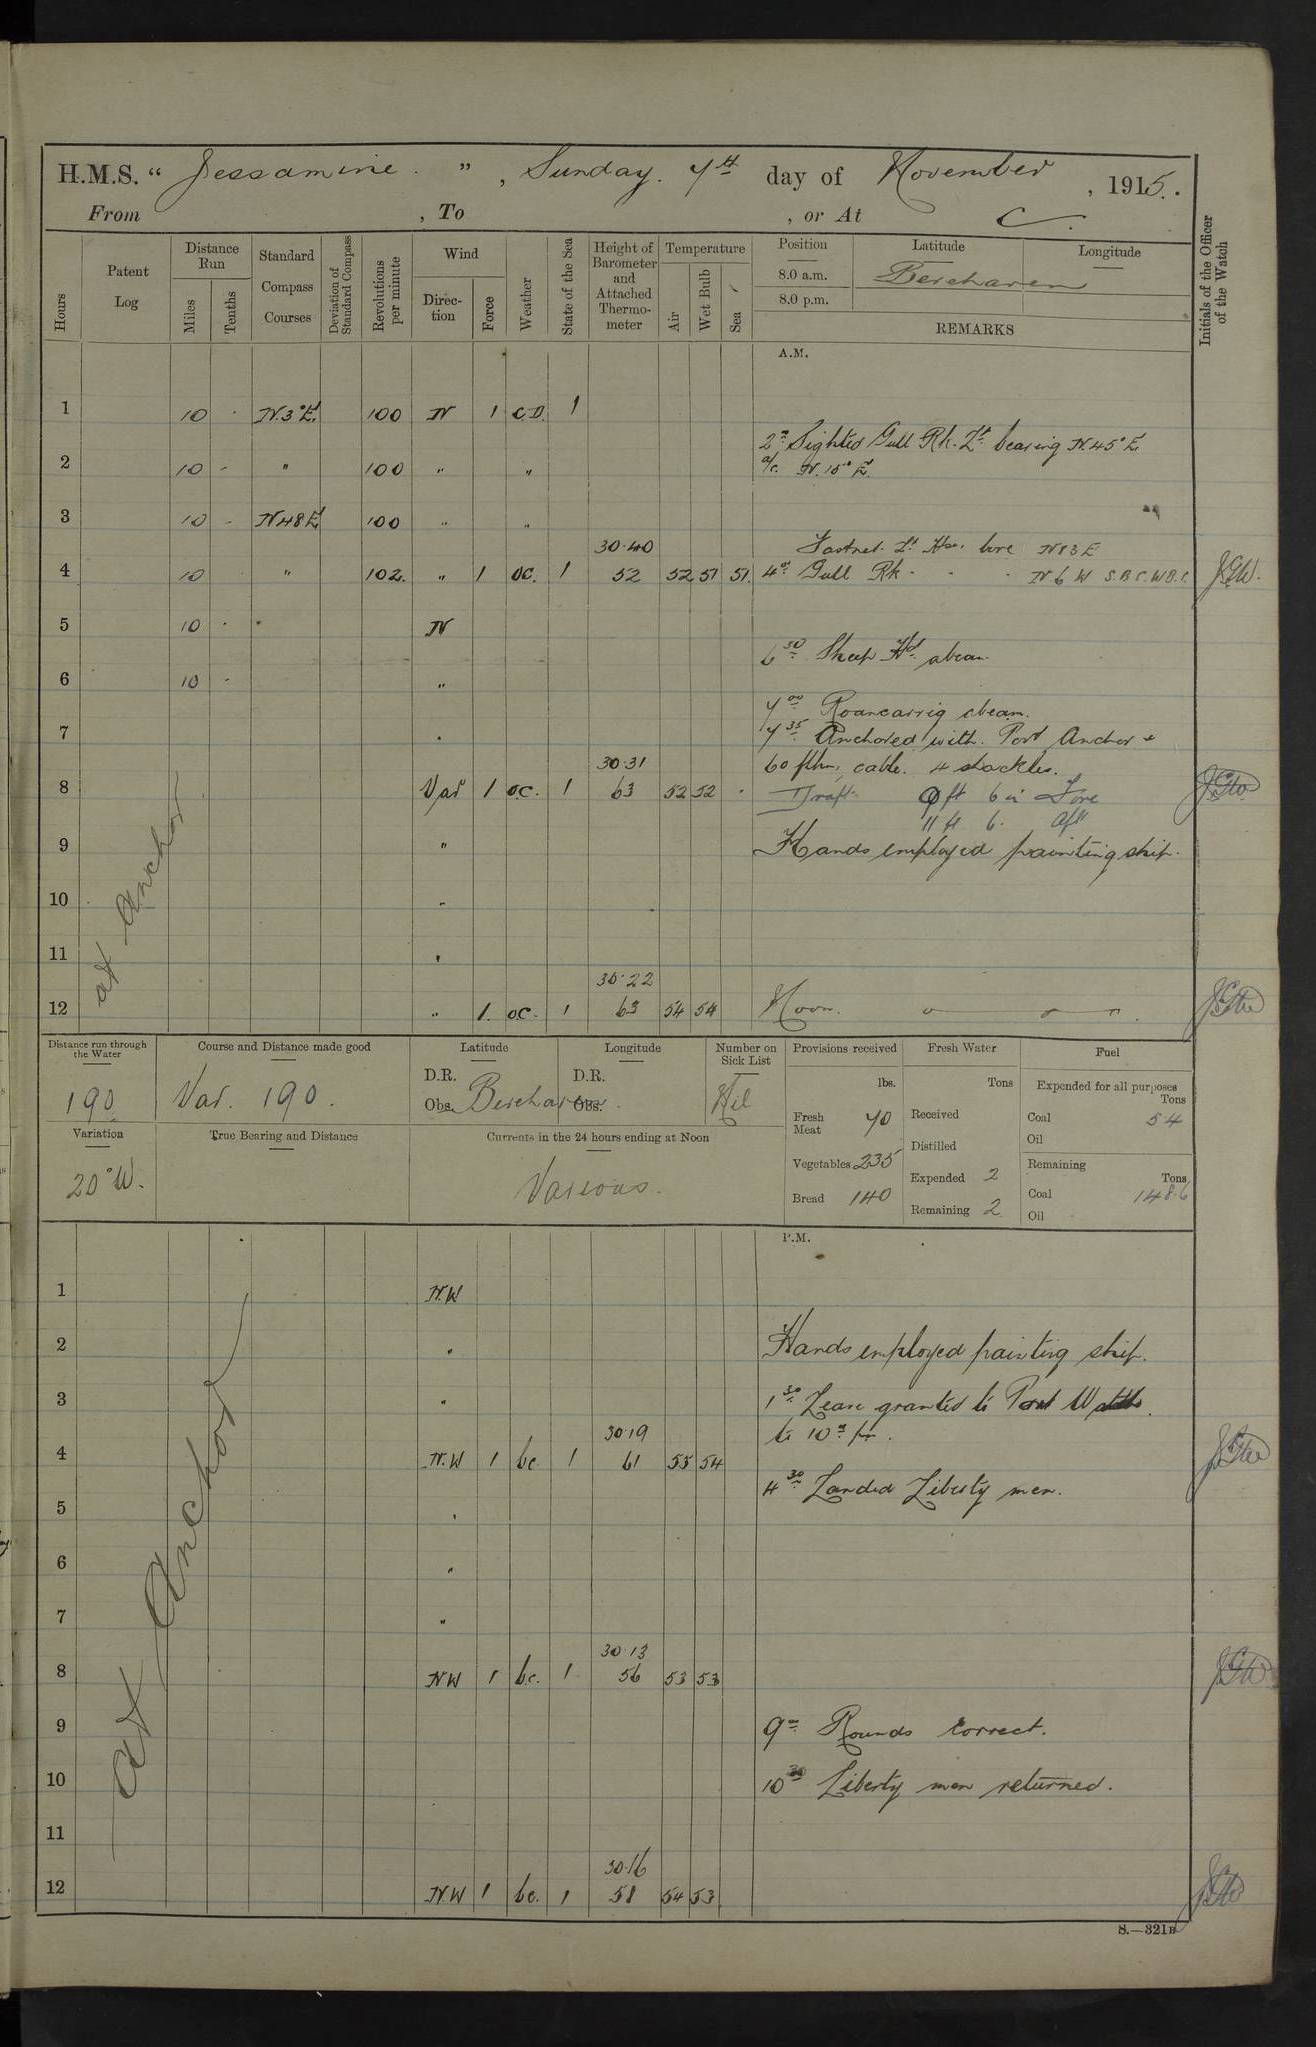 H.M.S. “ Jessamine. ” , Sunday. 7th day of November , 1915.
From , To , or At
Hours
Patent Log
Distance Run
Miles
Tenths
Standard Compass Courses
Deviation of Standard Compass
Revolutions per minute
Wind
Direc-tion
Force
Weather
State of the Sea
Height of Barometer and Attached Thermo-meter
Temperature
Air
Wet Bulb
Sea
Position
8.0 a.m.
8.0 p.m.
Latitude
Longitude
Berehaven
REMARKS
Initials of the Officer of the Watch
A.M.
1 10 · N.3°E. 100 N 1 C.D. 1
2.0 Sighted Gull Rk. Lt. bearing N.45°E
2 10 - " 100 " " a/c. N.15°E.
3 10 - N48E 100 " "
30.40 Fastnet Lt Hse. bore N13E
4 10 " 102. " 1 OC. 1 52 52 51 51. 4.0 Gull Rk - - - N6W S.B.C.W.B.C. JGW.
5 10 · " N
6.30 Sheep Hd. abeam
6 10 - "
7.00 Roancarrig abeam.
7 " 7.35 Anchored with Port Anchor &
30.31 60 fthm. cable. 4 shackles.
8 Var 1 oc. 1 63 52 52 · Draft ft 6 in Fore JGW.
11 ft 6. Aft
9 " Hands employed painting ship.
10 "
11 "
30.22
12 " 1. oc. 1 63 54 54 Noon. JGW
at anchor
Distance run through the Water
190
Course and Distance made good
Var. 190.
Latitude
D.R.
Obs. Berehaven.
Longitude
D.R.
Obs.
Number on Sick List
Nil
Provisions received
lbs.
Fresh Meat 70
Vegetables 235
Bread 140
Fresh Water
Tons
Received
Distilled
Expended 2
Remaining 2
Fuel
Expended for all purposes
Tons
Coal 54
Oil
Remaining
Tons
Coal 148.6
Oil
Variation
20°W.
True Bearing and Distance
Currents in the 24 hours ending at Noon
Various.
P.M.
1 N.W
2 " Hands employed painting ship.
3 " 1.30 Leave granted to Port Watch.
30.19 to 10.0 pm.
4 N.W 1 bc. 1 61 55 54 JGW
4.30 Landed Liberty men.
5 "
6 "
7 "
30.13
8 NW 1 b.c. 1 56 53 53 JGW
9 9.0 Rounds Correct.
10 10.30 Liberty men returned.
11
30.16
12 N.W 1 bc. 1 58 54 53 JGW
at anchor
S.—321B